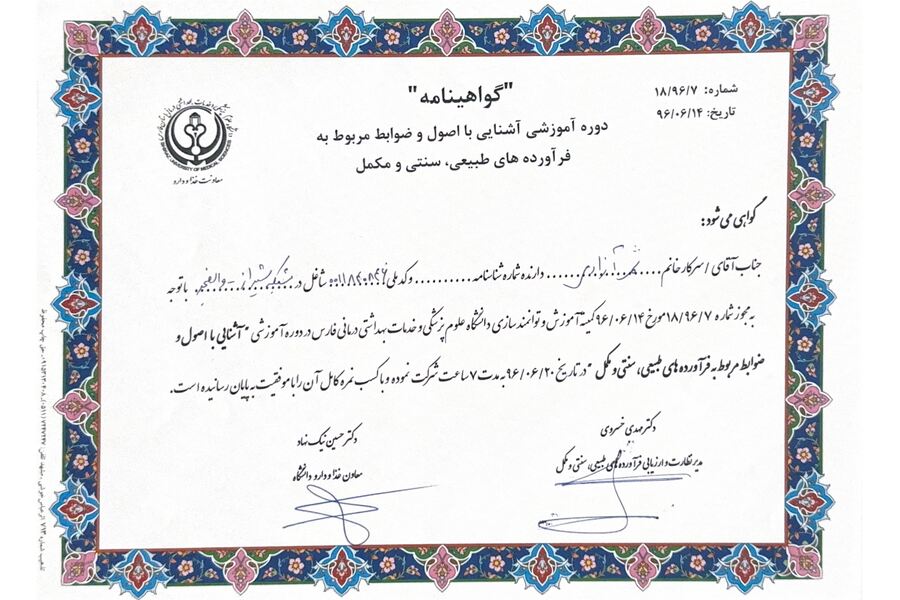 "گواهینامه"
شماره: ۱۸/۹۶/۷
تاریخ: ۹۶/۰۶/۱۴
دوره آموزشی آشنایی با اصول و ضوابط مربوط به
فرآورده های طبیعی، سنتی و مکمل
SHIRAZ UNIVERSITY OF MEDICAL SCIENCES
معاونت غذا و دارو
گواهی می شود:
جناب آقای / سرکار خانم .... دارنده شماره شناسنامه .......... و کد ملی شاغل در با توجه
به مجوز شماره ۱۸/۹۶/۷ مورخ ۹۶/۰۶/۱۴ کمیته آموزش و توانمند سازی دانشگاه علوم پزشکی و خدمات بهداشتی درمانی فارس در دوره آموزشی " آشنایی با اصول و
ضوابط مربوط به فرآورده های طبیعی، سنتی و مکمل " در تاریخ ۹۶/۰۶/۲۰ به مدت ۷ ساعت شرکت نموده و با کسب نمره کامل آن را با موفقیت به پایان رسانیده است.
دکتر مهدی خسروی
مدیر نظارت و ارزیابی فرآورده های طبیعی، سنتی و مکمل
دکتر حسین نیک نهاد
معاون غذا و دارو دانشگاه